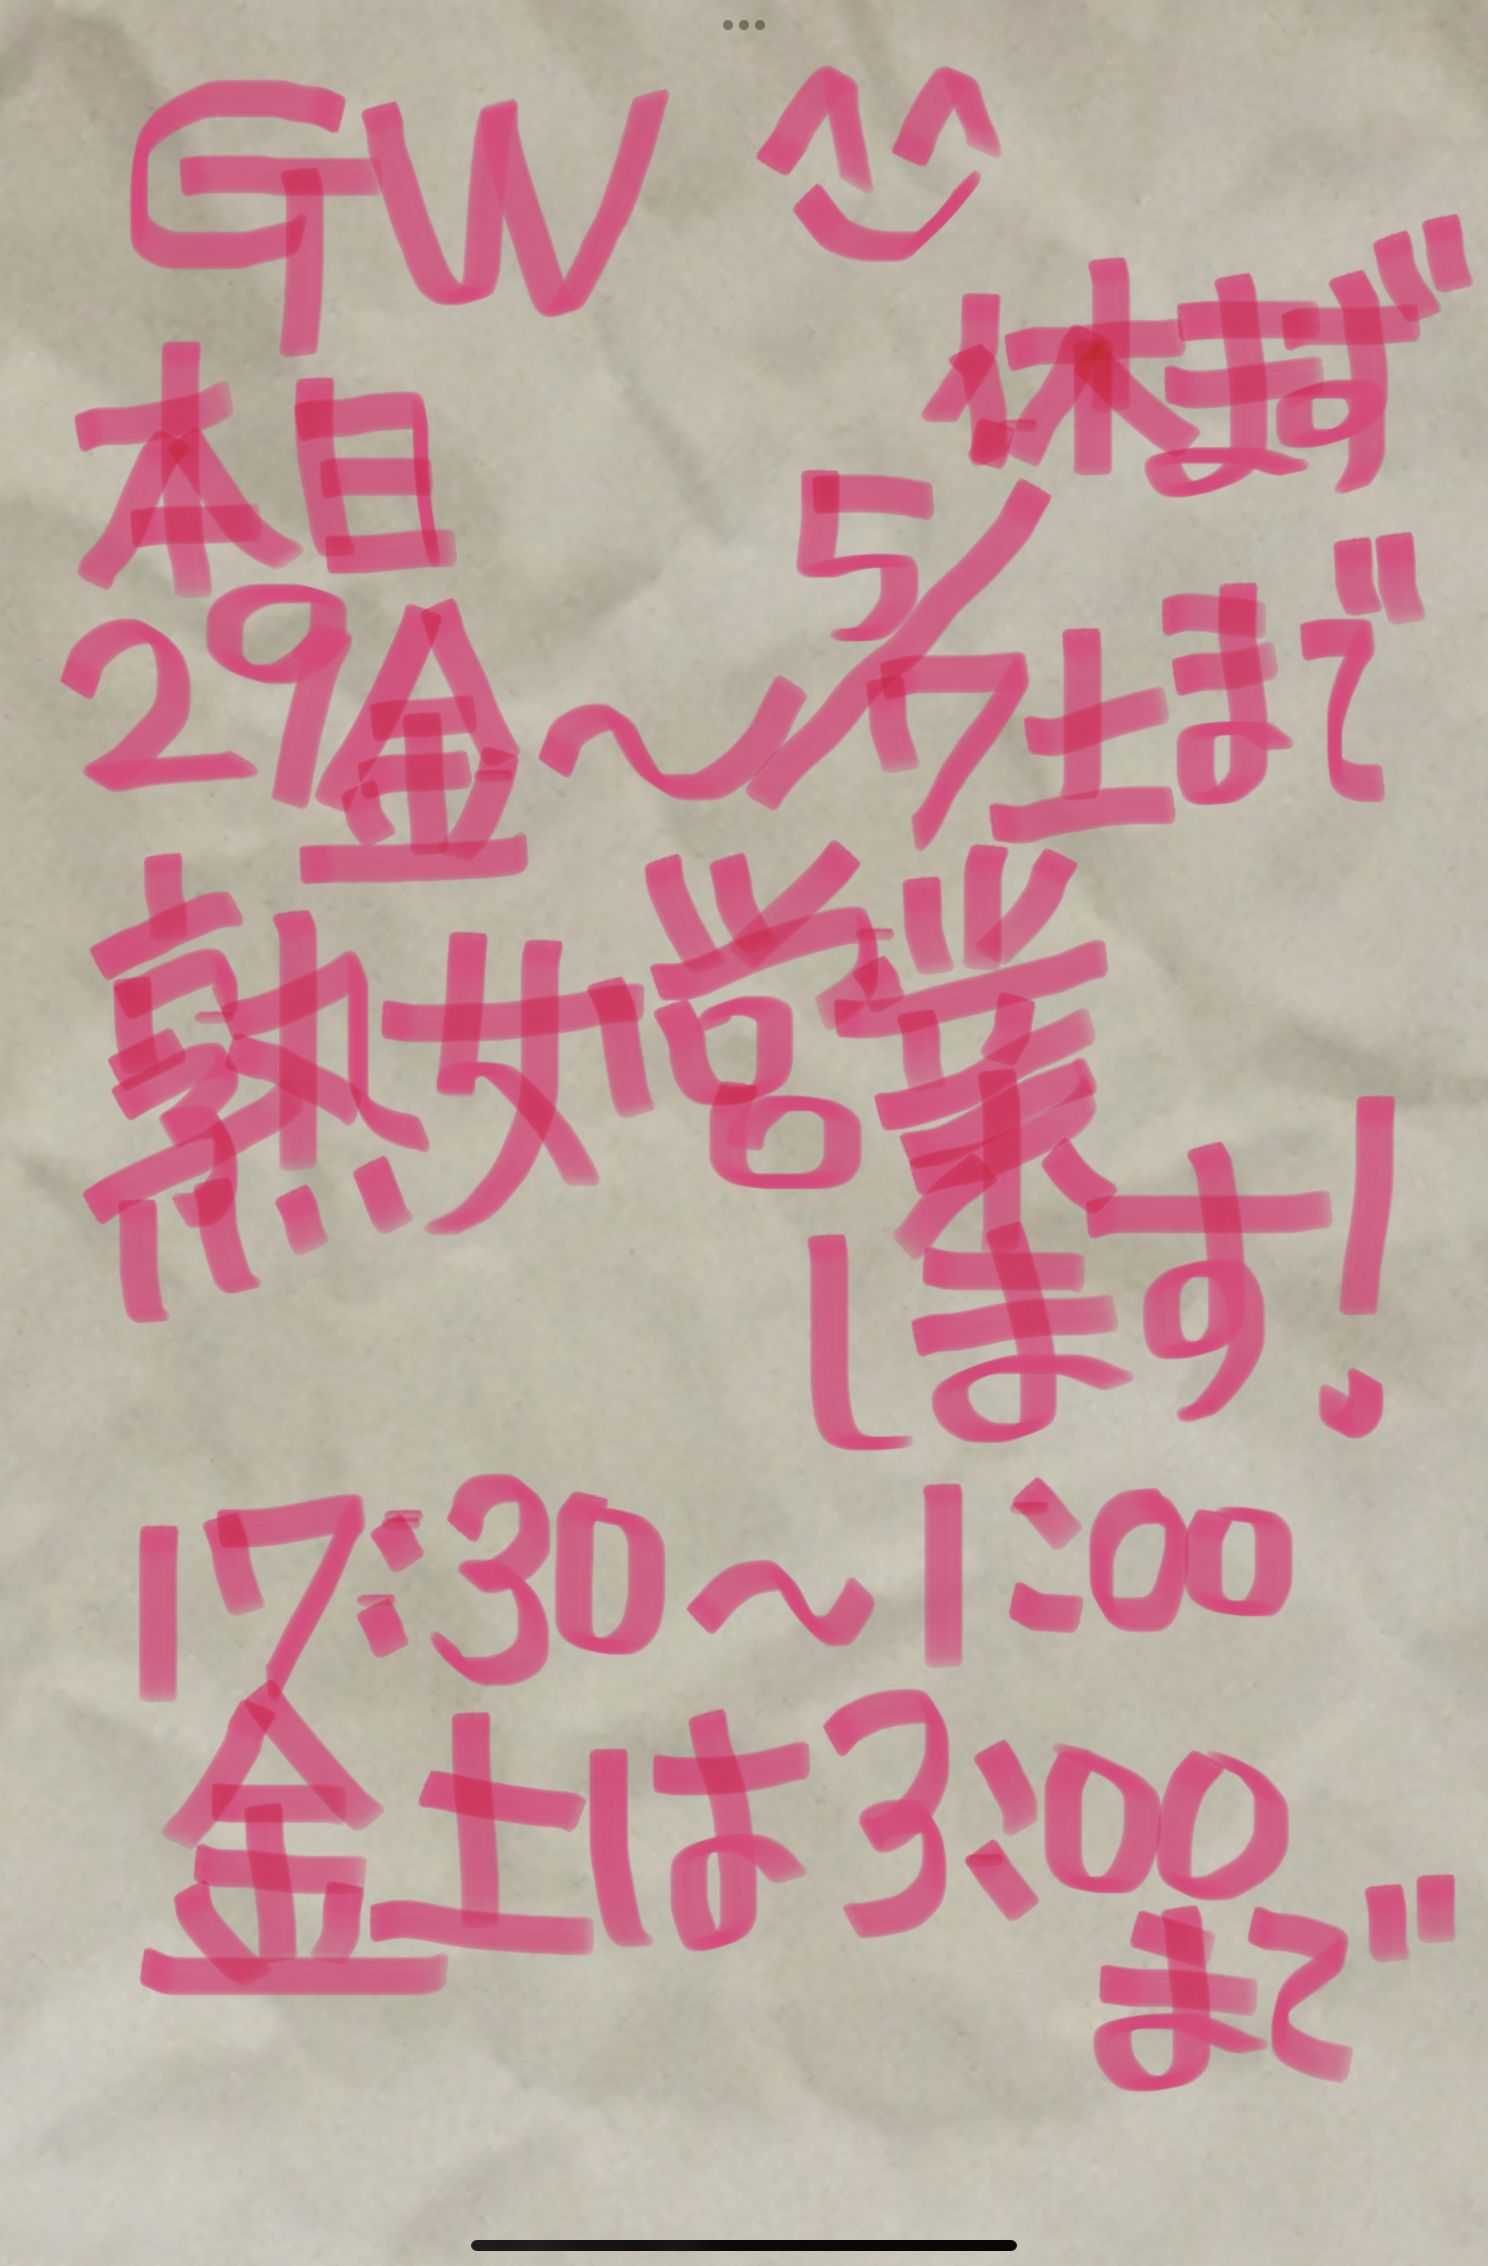 GW ^^
休まず
本日
29金〜5/7土まで
熟女営業
します!
17:30〜1:00
金土は3:00
まで